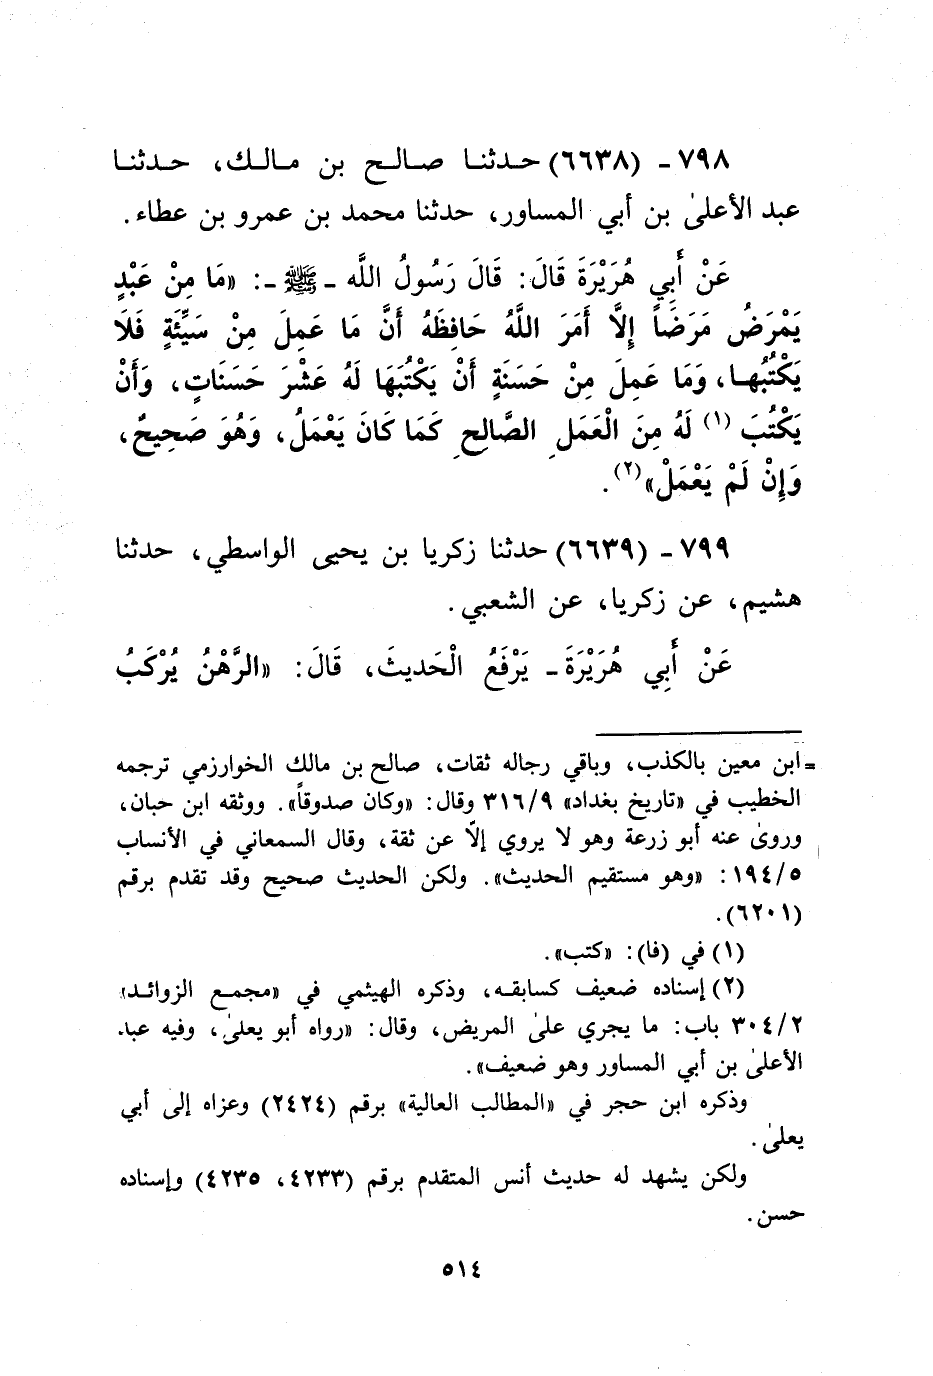 ٧٩٨ - (٦٦٣٨) حدثنا صالح بن مالك، حدثنا
عبد الأعلىٰ بن أبي المساور، حدثنا محمد بن عمرو بن عطاء.
عَنْ أَبِي هُرَيْرَةَ قَالَ: قَالَ رَسُولُ اللَّه - ﷺ -: «مَا مِنْ عَبْدٍ
يَمْرَضُ مَرَضَاً إِلَّا أَمَرَ اللَّهُ حَافِظَهُ أَنَّ مَا عَمِلَ مِنْ سَيِّئَةٍ فَلَا
يَكْتُبُهـا، وَمَا عَمِلَ مِنْ حَسَنَةٍ أَنْ يَكْتُبَهَا لَهُ عَشْرَ حَسَنَاتٍ، وَأَنْ
يَكْتُبَ (١) لَهُ مِنَ الْعَمَلِ الصَّالِحِ كَمَا كَانَ يَعْمَلُ، وَهُوَ صَحِيحٌ،
وَإِنْ لَمْ يَعْمَلْ»(٢).
٧٩٩ - (٦٦٣٩) حدثنا زكريا بن يحيى الواسطي، حدثنا
هشيم، عن زكريا، عن الشعبي.
عَنْ أَبِي هُرَيْرَةَ - يَرْفَعُ الْحَديثَ، قَالَ: «الرَّهْنُ يُرْكَبُ
= ابن معين بالكذب، وباقي رجاله ثقات، صالح بن مالك الخوارزمي ترجمه
الخطيب في «تاريخ بغداد» ٣١٦/٩ وقال: «وكان صدوقاً». ووثقه ابن حبان،
وروىٰ عنه أبو زرعة وهو لا يروي إلّا عن ثقة، وقال السمعاني في الأنساب
١٩٤/٥: «وهو مستقيم الحديث». ولكن الحديث صحيح وقد تقدم برقم
(٦٢٠١).
(١) في (فا): «كتب».
(٢) إسناده ضعيف كسابقـه، وذكره الهيثمي في «مجمـع الزوائـد»
٣٠٤/٢ باب: ما يجري علىٰ المريض، وقال: «رواه أبو يعلىٰ، وفيه عبد
الأعلىٰ بن أبي المساور وهو ضعيف».
وذكره ابن حجر في «المطالب العالية» برقم (٢٤٢٤) وعزاه إلى أبي
يعلىٰ.
ولكن يشهد له حديث أنس المتقدم برقم (٤٢٣٣، ٤٢٣٥) وإسناده
حسن.
٥١٤